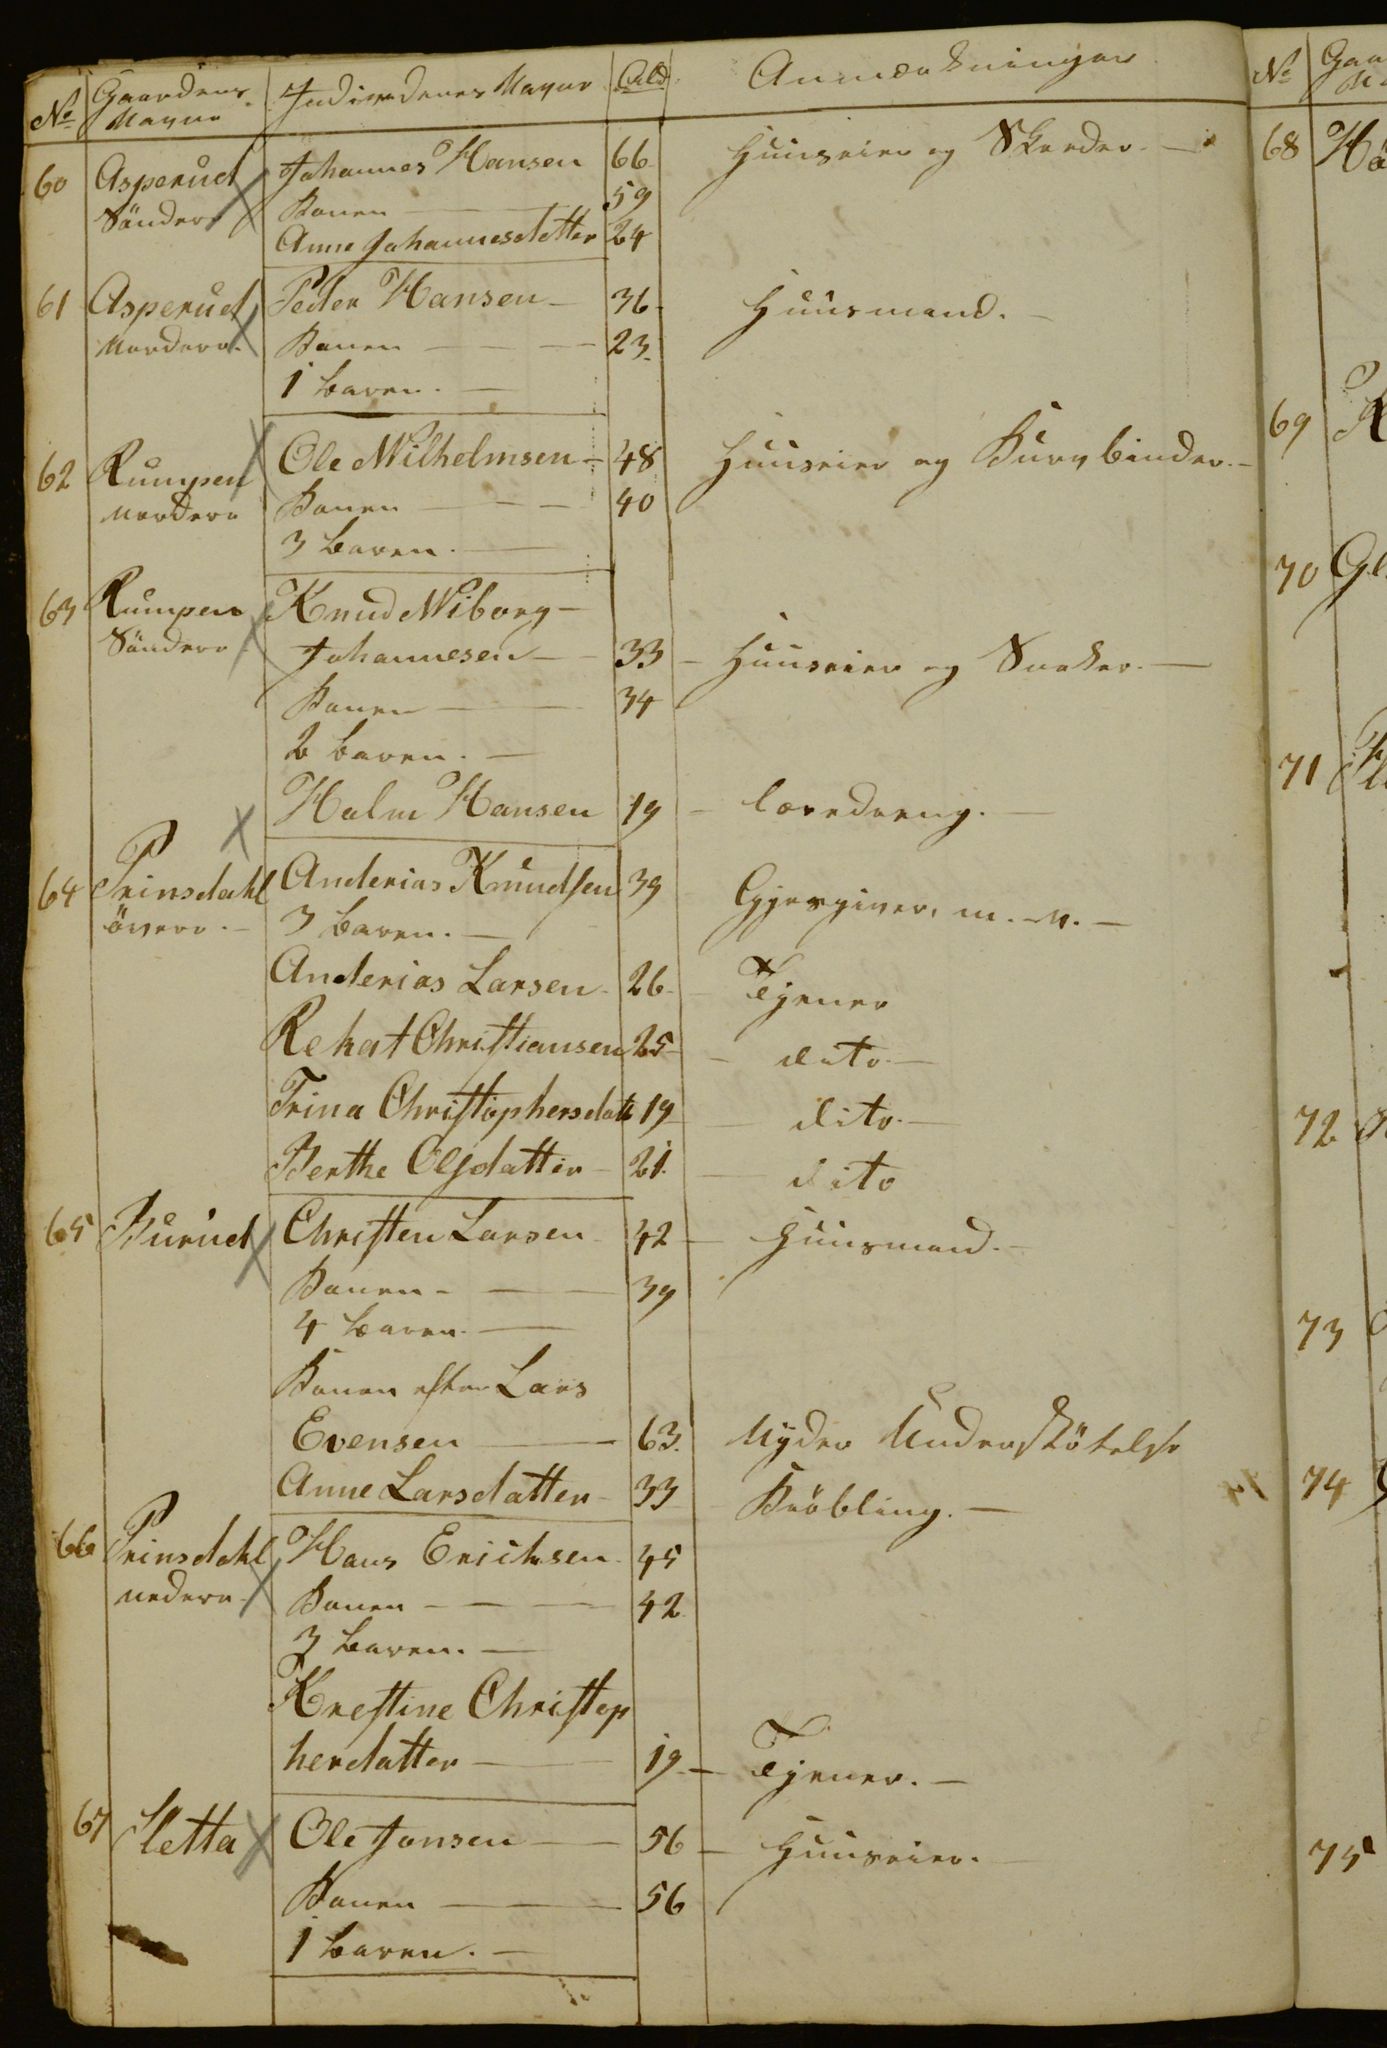 No Gaardens Navne Individernes Navne Ald. Anmærkninger
60 Asperud Søndere Johannes Hansen 66 Huuseier og Skræder. —
Konen — 59
Anne Johannesdatter 24
61 Asperud Nordere. Peder Hansen — 36 Huusmand. —
Konen — 23.
1 barn. —
62 Rumpen Nordere Ole Wilhelmsen — 48 Huuseier og Kurvbinder. —
Konen — 40
3 børn. —
63 Rumpen Søndere Knud Wiborg —
Johannesen — 33 — Huuseier og —
Konen — 34
2 børn. —
Halm Hansen 19 — læredreng. —
64 Prinsdahl övere. — Anderias Knudsen 39 Gjæsgiver, m. v. —
3 børn. —
Anderias Larsen 26 — Tjener
Rekat Christiansen 25 — dito —
Trina Christophersdatt 19 — dito. —
Berthe Olsdatter — 21. — dito
65 Burud Christen Larsen 42 — Huusmand. —
Konen — 39
4 børn. —
Konen efter Lars
Evensen — 63. Nyder Understøtelse
Anne Larsdatter — 33 Krøbling. —
66 Prinsdahl nedere — Hans Erichsen 45
Konen — 42
3 børn. —
Krestine Christop
herdatter — 19 — Tjener. —
67 Sletta Ole Jonsen — 56 — Huuseier. —
Konen — 56
1 barn. —
No Gaa
68 Hö
69 K
70 Gl
71 Fl
72
73
74
75